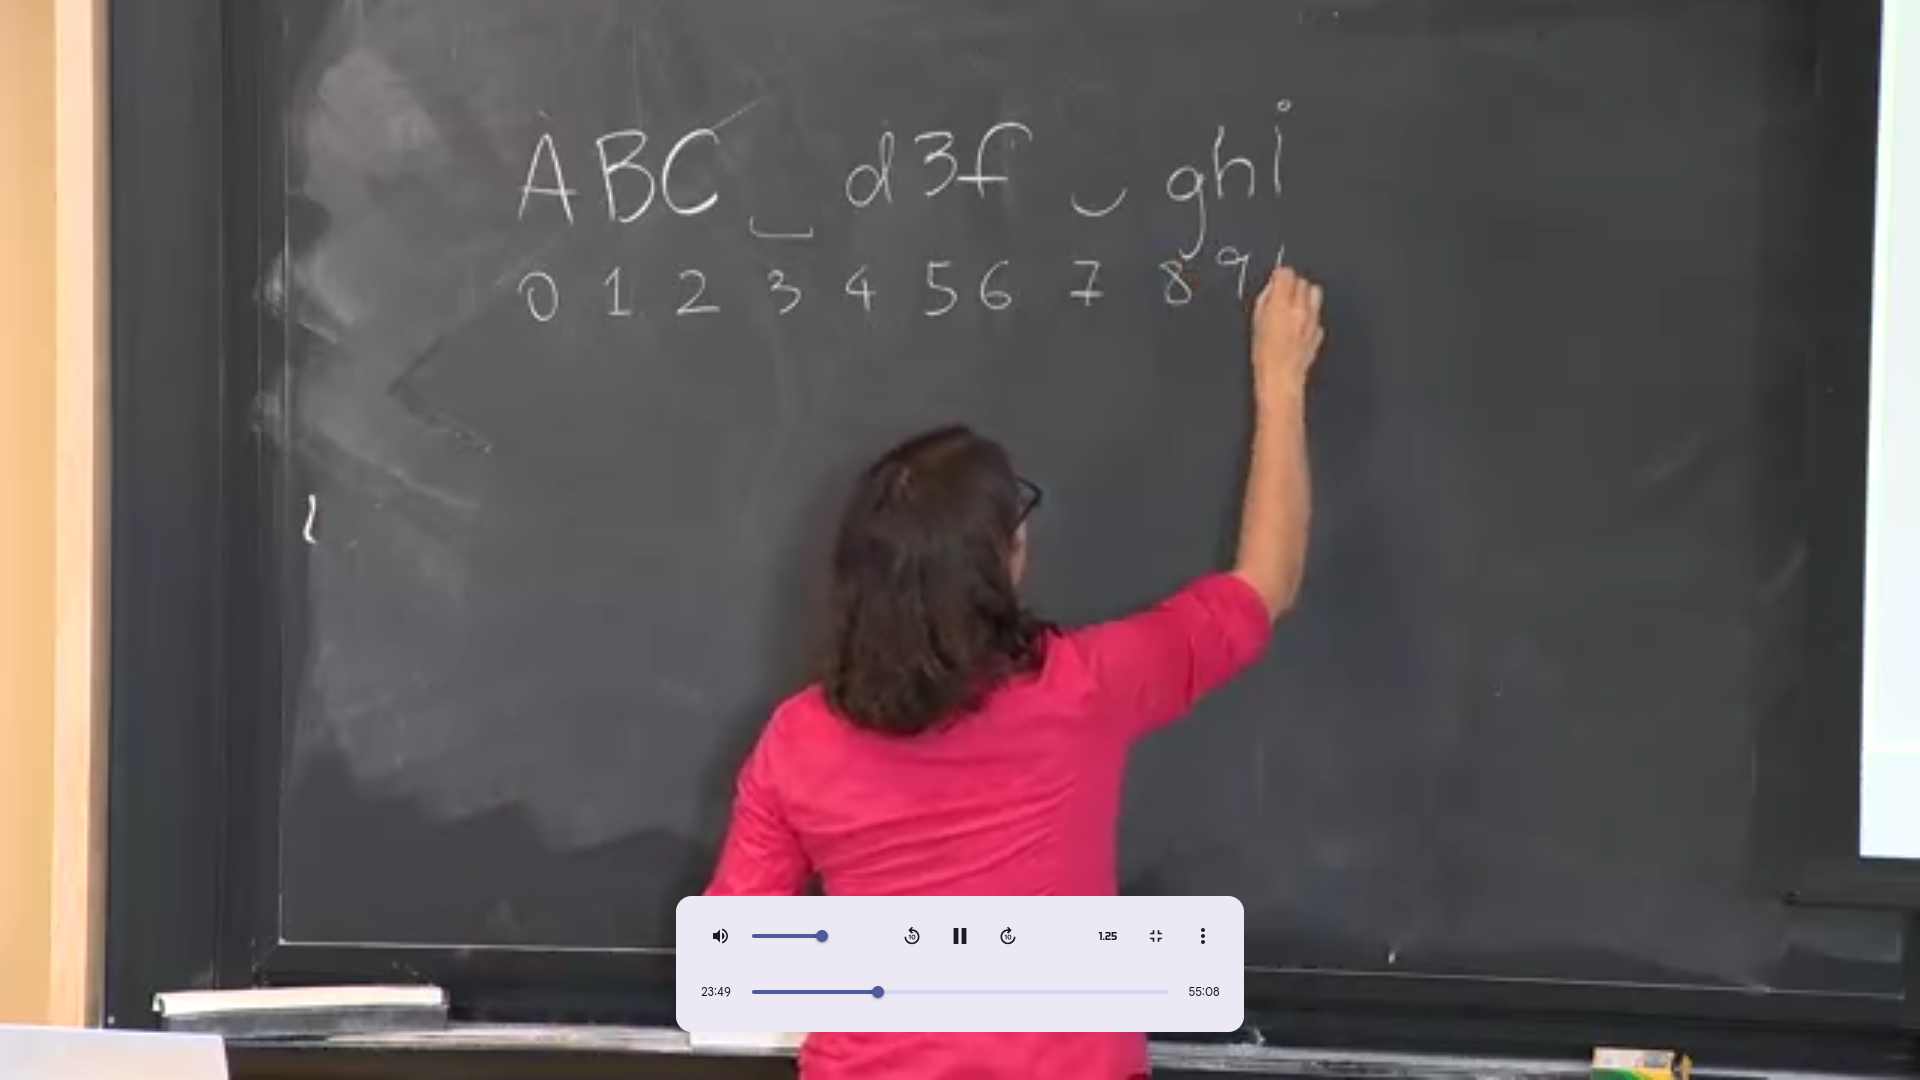 ABC ⎵ d3f ⎵ ghi
0 1 2 3 4 5 6 7 8 9 1
1.25
23:49 55:08